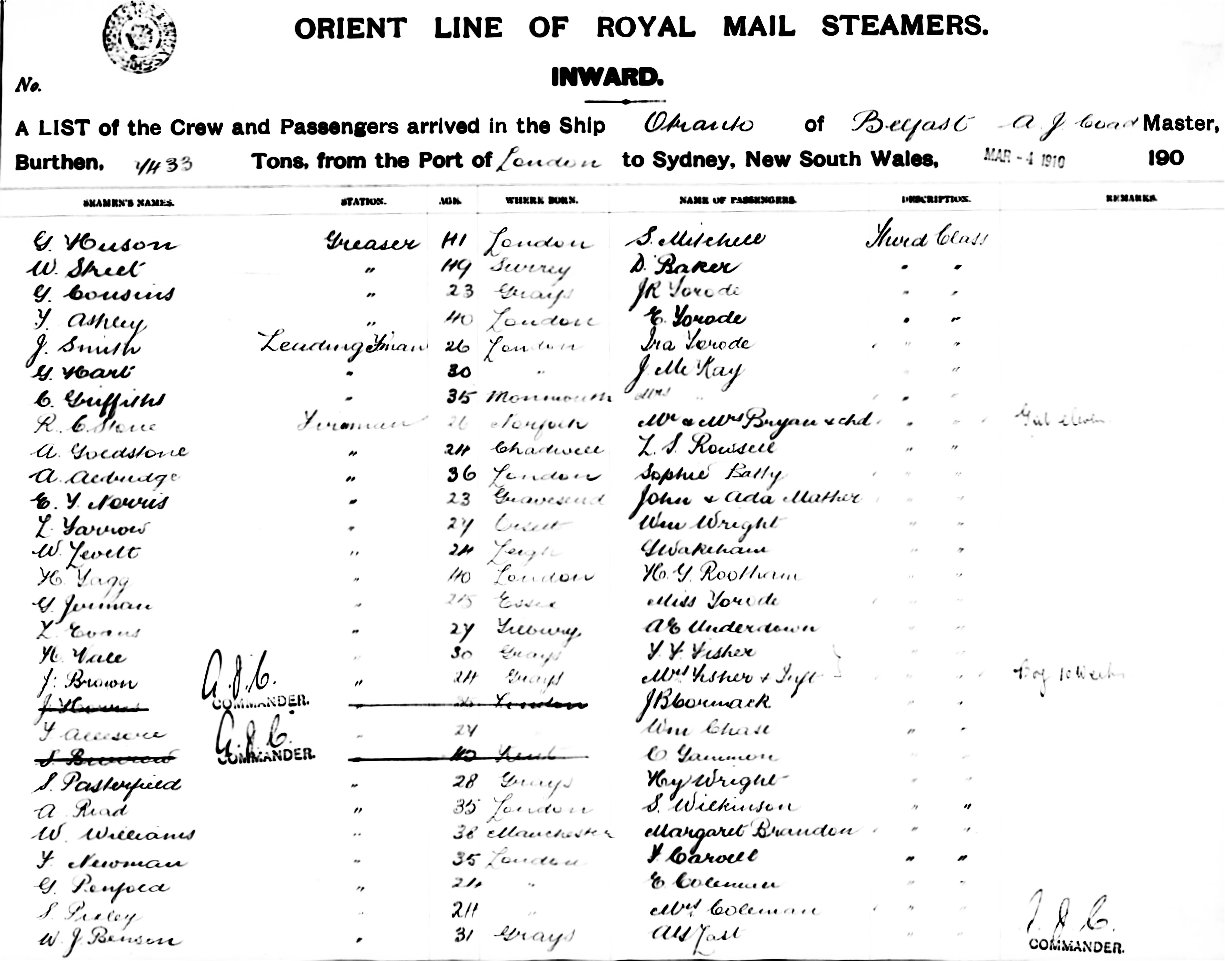 ORIENT LINE OF ROYAL MAIL STEAMERS.
No.
INWARD.
A LIST of the Crew and Passengers arrived in the Ship Otranto of Belfast A. J. Coad Master,
Burthen, 7433 Tons, from the Port of London to Sydney, New South Wales, MAR -4 1910 190
SEAMEN'S NAMES. STATION. AGE. WHERE BORN. NAME OF PASSENGERS. DESCRIPTION. REMARKS.
G. Huson Greaser 41 London S. Mitchell Third Class
W. Street " 49 Surrey D. Baker " "
G. Cousins " 23 Grays JR Torode " "
F. Ashley " 40 London E. Torode " "
J. Smith Leading Fman 26 London Ira Torode " "
G. Hart " 30 " J McKay " "
C. Griffiths " 35 Monmouth Mrs " " "
R. C. Stone Fireman 26 Norfolk Mr & Mrs Bryan & chd. " " Girl eleven
A. Goldstone " 24 Chadwell L. S. Rowsell " "
A. Aldridge " 36 London Sophie Batty " "
E. F. Norris " 23 Gravesend John & Ada Mather " "
L. Farrow " 27 Orsett Wm Wright " "
W. Levett " 24 Leigh G Wakeham " "
H. Fagg " 40 London H. G. Rootham " "
G. Jerman " 25 Essex Miss Torode " "
L. Evans " 27 Tilbury. A E Underdown " "
H. Vale " 30 Grays F. F. Fisher " "
J. Brown A.J.C. " 24 Grays Mrs Fisher & Inft " " Boy 10 Weeks
COMMANDER. London J B Cormack
F " 27 Wm Chase " "
S A.J.C. COMMANDER. 40 Kent C Gammon " "
S. Pasterfield " 28 Grays Hy Wright " "
A. Read " 35 London S. Wilkinson " "
W. Williams " 38 Manchester Margaret Brandon " "
F. Newman " 35 London F Carvell " "
G. Penfold " 24 " E Coleman " "
S. " 24 " Mrs Coleman " " A.J.C.
W. J. Benson " 31 Grays Last " " COMMANDER.